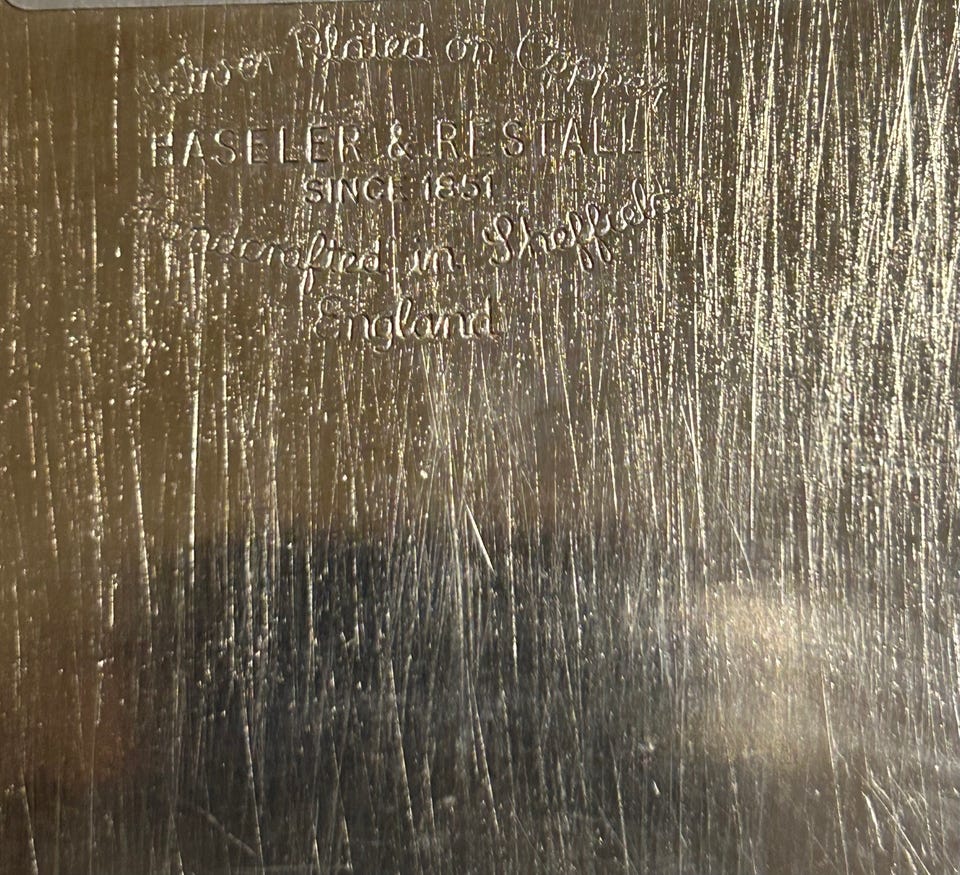 Silver Plated on Copper
HASELER & RESTALL
SINCE 1851
Handcrafted in Sheffield
England